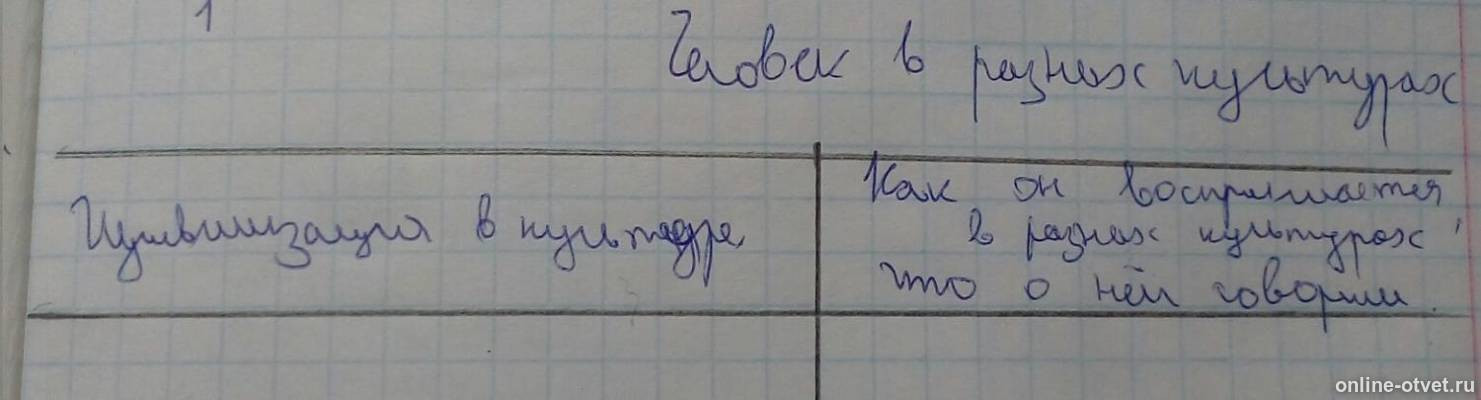 1
Человек в разных культурах
Цивилизация в культуре
Как он воспринимается
в разных культурах,
что о нём говорили.
online-otvet.ru